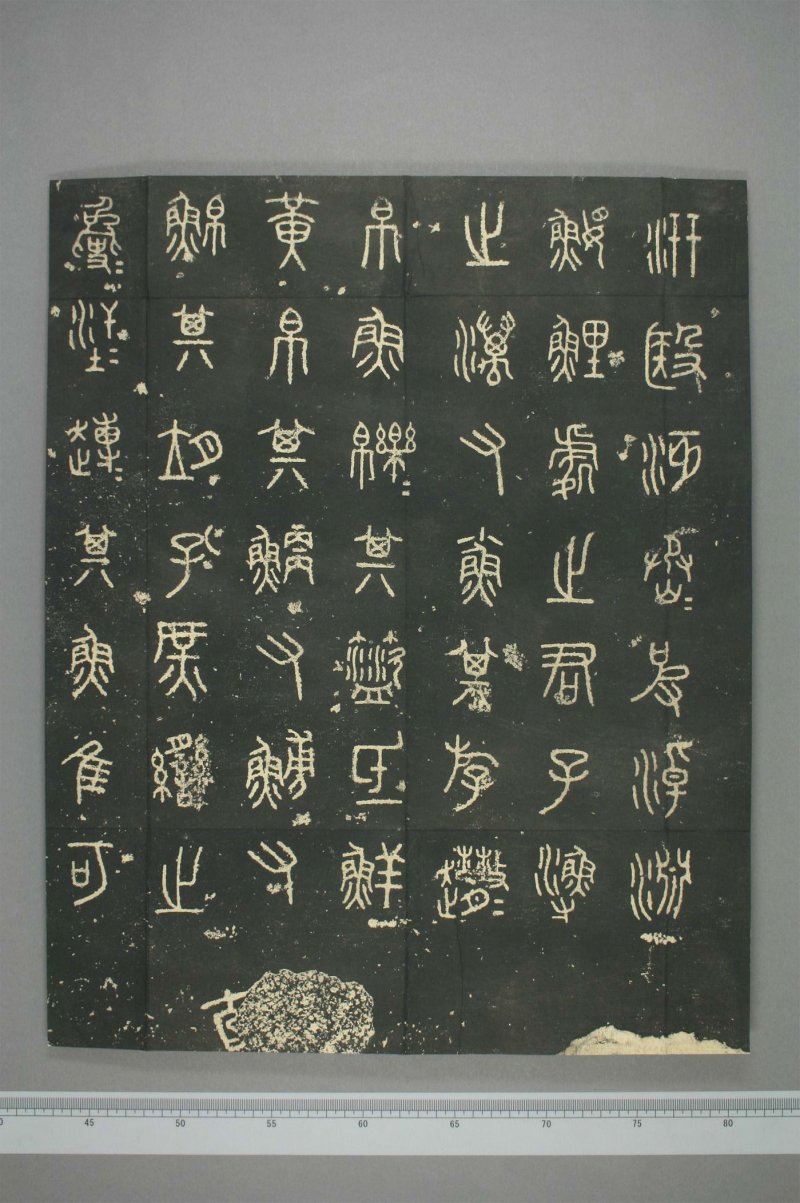 汧殹沔丞=皮淖淵
鰋鯉處之君子漁
之澫又小魚其斿趣=
帛魚皪=其盜氐鮮
黃帛其鯾又鱄又
鮊其孔庶臠之
其魚隹可